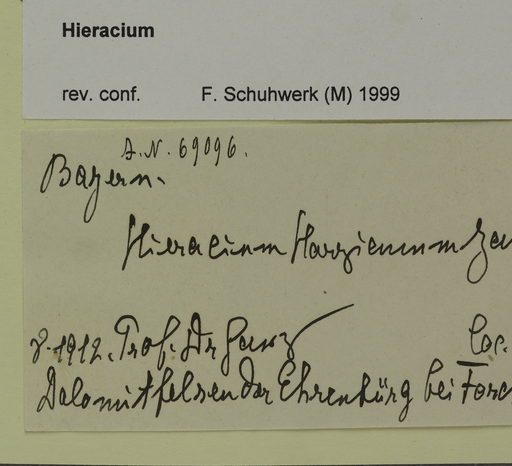 Hieracium
rev. conf. F. Schuhwerk (M) 1999
J.N. 69096.
Bayern.
Hieracium Harzianum Za
8. 1912. Prof. Dr Harz loc.
Dolomitfelsen der Ehrenbürg bei Forc